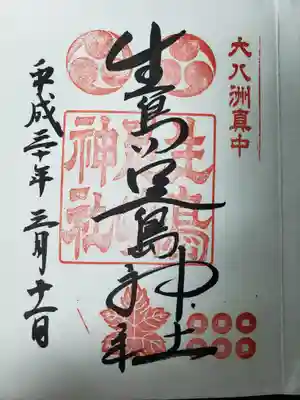 大八洲真中
生島足島神社
生島
足島
神社
平成三十年三月十一日